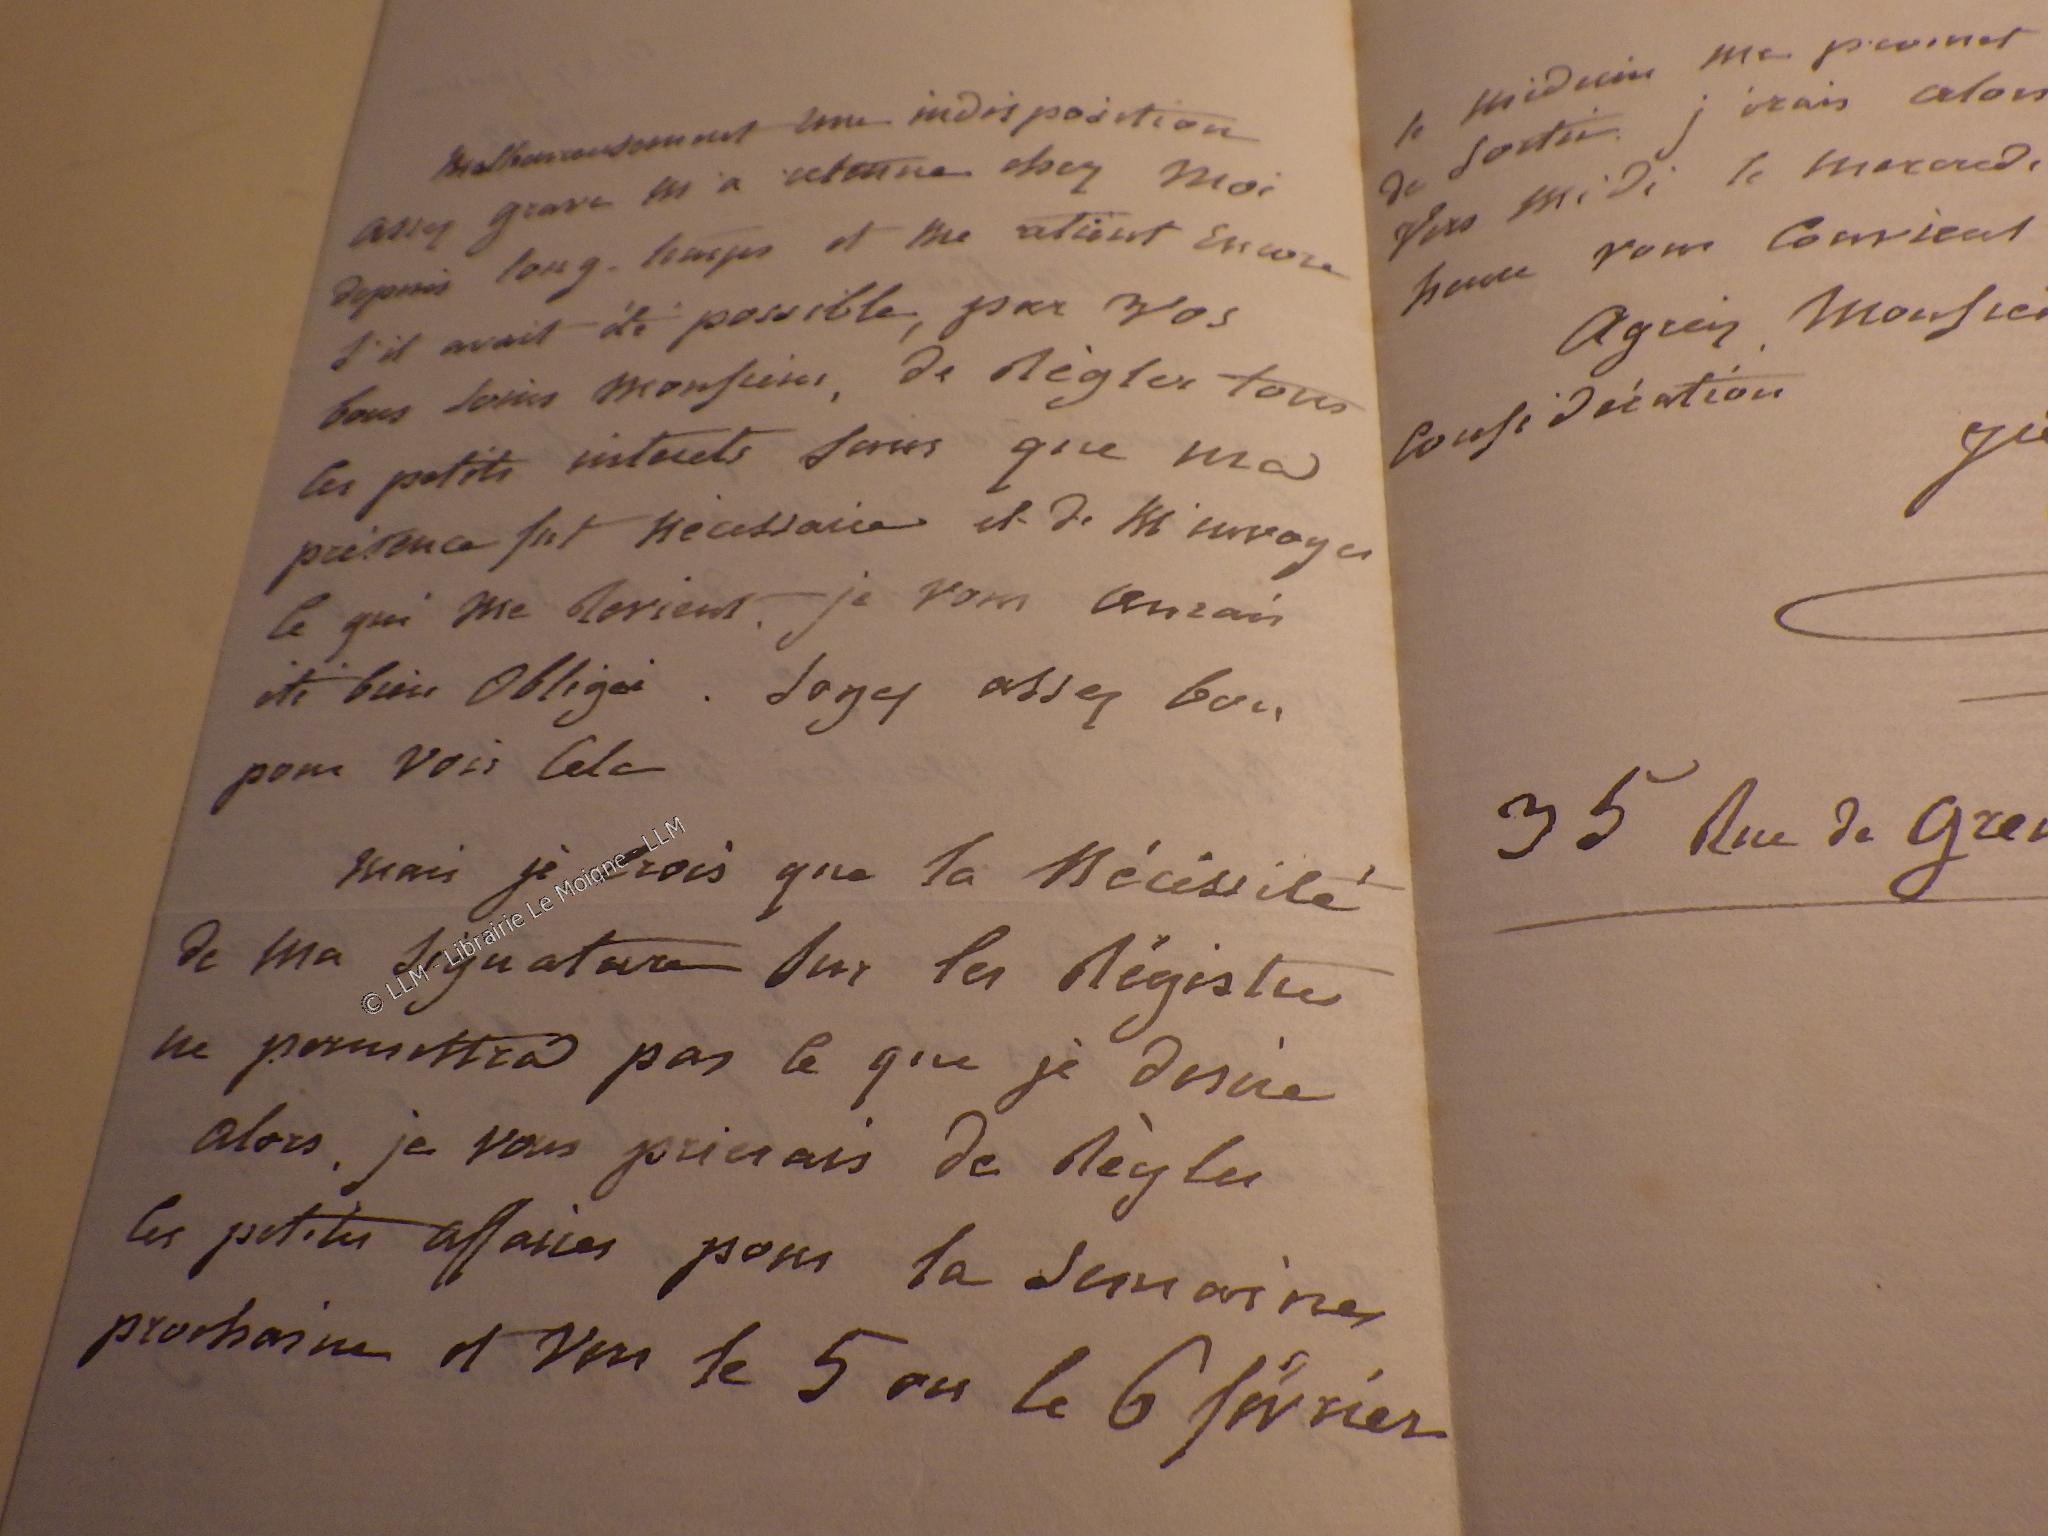 Malheureusement une indisposition
assez grave m'a retenue chez moi
depuis long-temps et me retient encore
S'il avait été possible, par vos
bons soins Monsieur, de régler tous
ces petits interets sans que ma
présence fut nécessaire et de m'envoyer
ce qui me revient. je vous aurais
été bien obligée. Soyez assez bon,
pour voir cela
Mais je crois que la nécéssité
de ma signature sur les régistres
ne permettra pas ce que je desire
alors, je vous prierais de règler
ces petites affaires pour la semaine
prochaine et vers le 5 ou le 6 février
le médecin me permet
de sortir. j'irais alors
vers midi le mercredi
heure vous convient
Agréez, Monsieu
considération
35 Rue de Gren
© LLM - Librairie Le Moigne - LLM